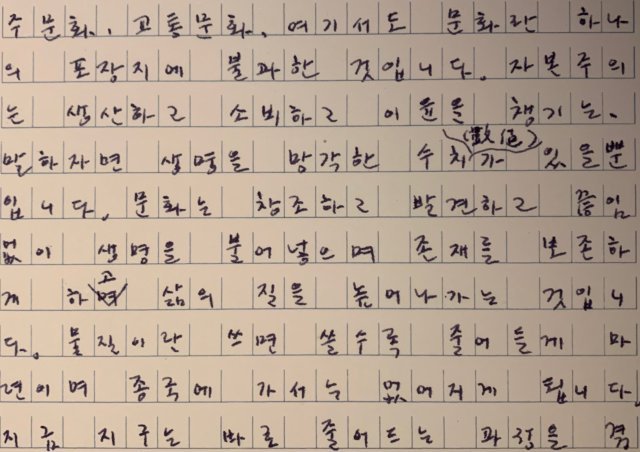 주 문화, 교통문화, 여기서도 문화란 하나
의 포장지에 불과한 것입니다. 자본주의
는 생산하고 소비하고 이윤을 챙기는,
(數値)
말하자면 생명을 망각한 수치가 있을뿐
입니다. 문화는 창조하고 발견하고 끊임
없이 생명을 불어넣으며 존재를 보존하
게 하고 삶의 질을 높여나가는 것입니
다. 물질이란 쓰면 쓸수록 줄어들게 마
련이며 종국에 가서는 없어지게 됩니다.
지금 지구는 바로 줄어드는 과정을 겪